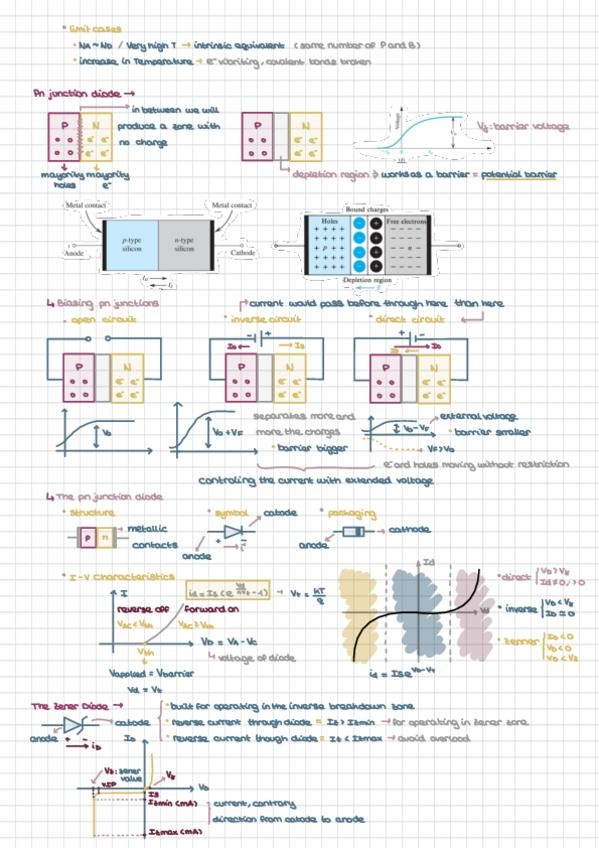 * limit cases
• NA ~ ND / Very high T → intrinsic equivalent (same number of P and B)
• increase in Temperature → e⁻ worliting, covalent bonds broken
Pn junction diode →
in between we will
produce a zone with
no charge
P N
mayority mayority
holes e⁻
P N
depletion region → works as a barrier = potential barrier
Voltage
Vγ: barrier voltage
Metal contact Metal contact
p-type silicon
n-type silicon
Anode Cathode
Bound charges
Holes Free electrons
Depletion region
↳ Biasing pn junctions
current would pass before through here than here
• open circuit • inverse circuit • direct circuit
P N P N P N
V0 V0 + VF
separates more and
more the charges
• barrier bigger
V0 - VF
external voltage
• barrier smaller
VF > V0
e⁻ and holes moving without restriction
controling the current with extended voltage
↳ The pn junction diode
• structure • symbol • packaging
p n
metallic
contacts
catode
anode
anode
cathode
• I-V Characteristics
I
reverse off forward on
VAC < VTH VAC ≥ VTH
VTH
Vapplied = Vbarrier
VD = VA - VC
↳ voltage of diode
Vt = KT/q
Id
Vd
• direct
• inverse
• zenner
The Zener Diode →
* built for operating in the inverse breakdown zone
* reverse current through diode = It > Itmin → for operating in zener zone
* reverse current though diode = It < Itmax → avoid overload
anode catode
iD
ID
Vz: zener
value
VD
Itmin (mA)
Itmax (mA)
current, contrary
direction from catode to anode